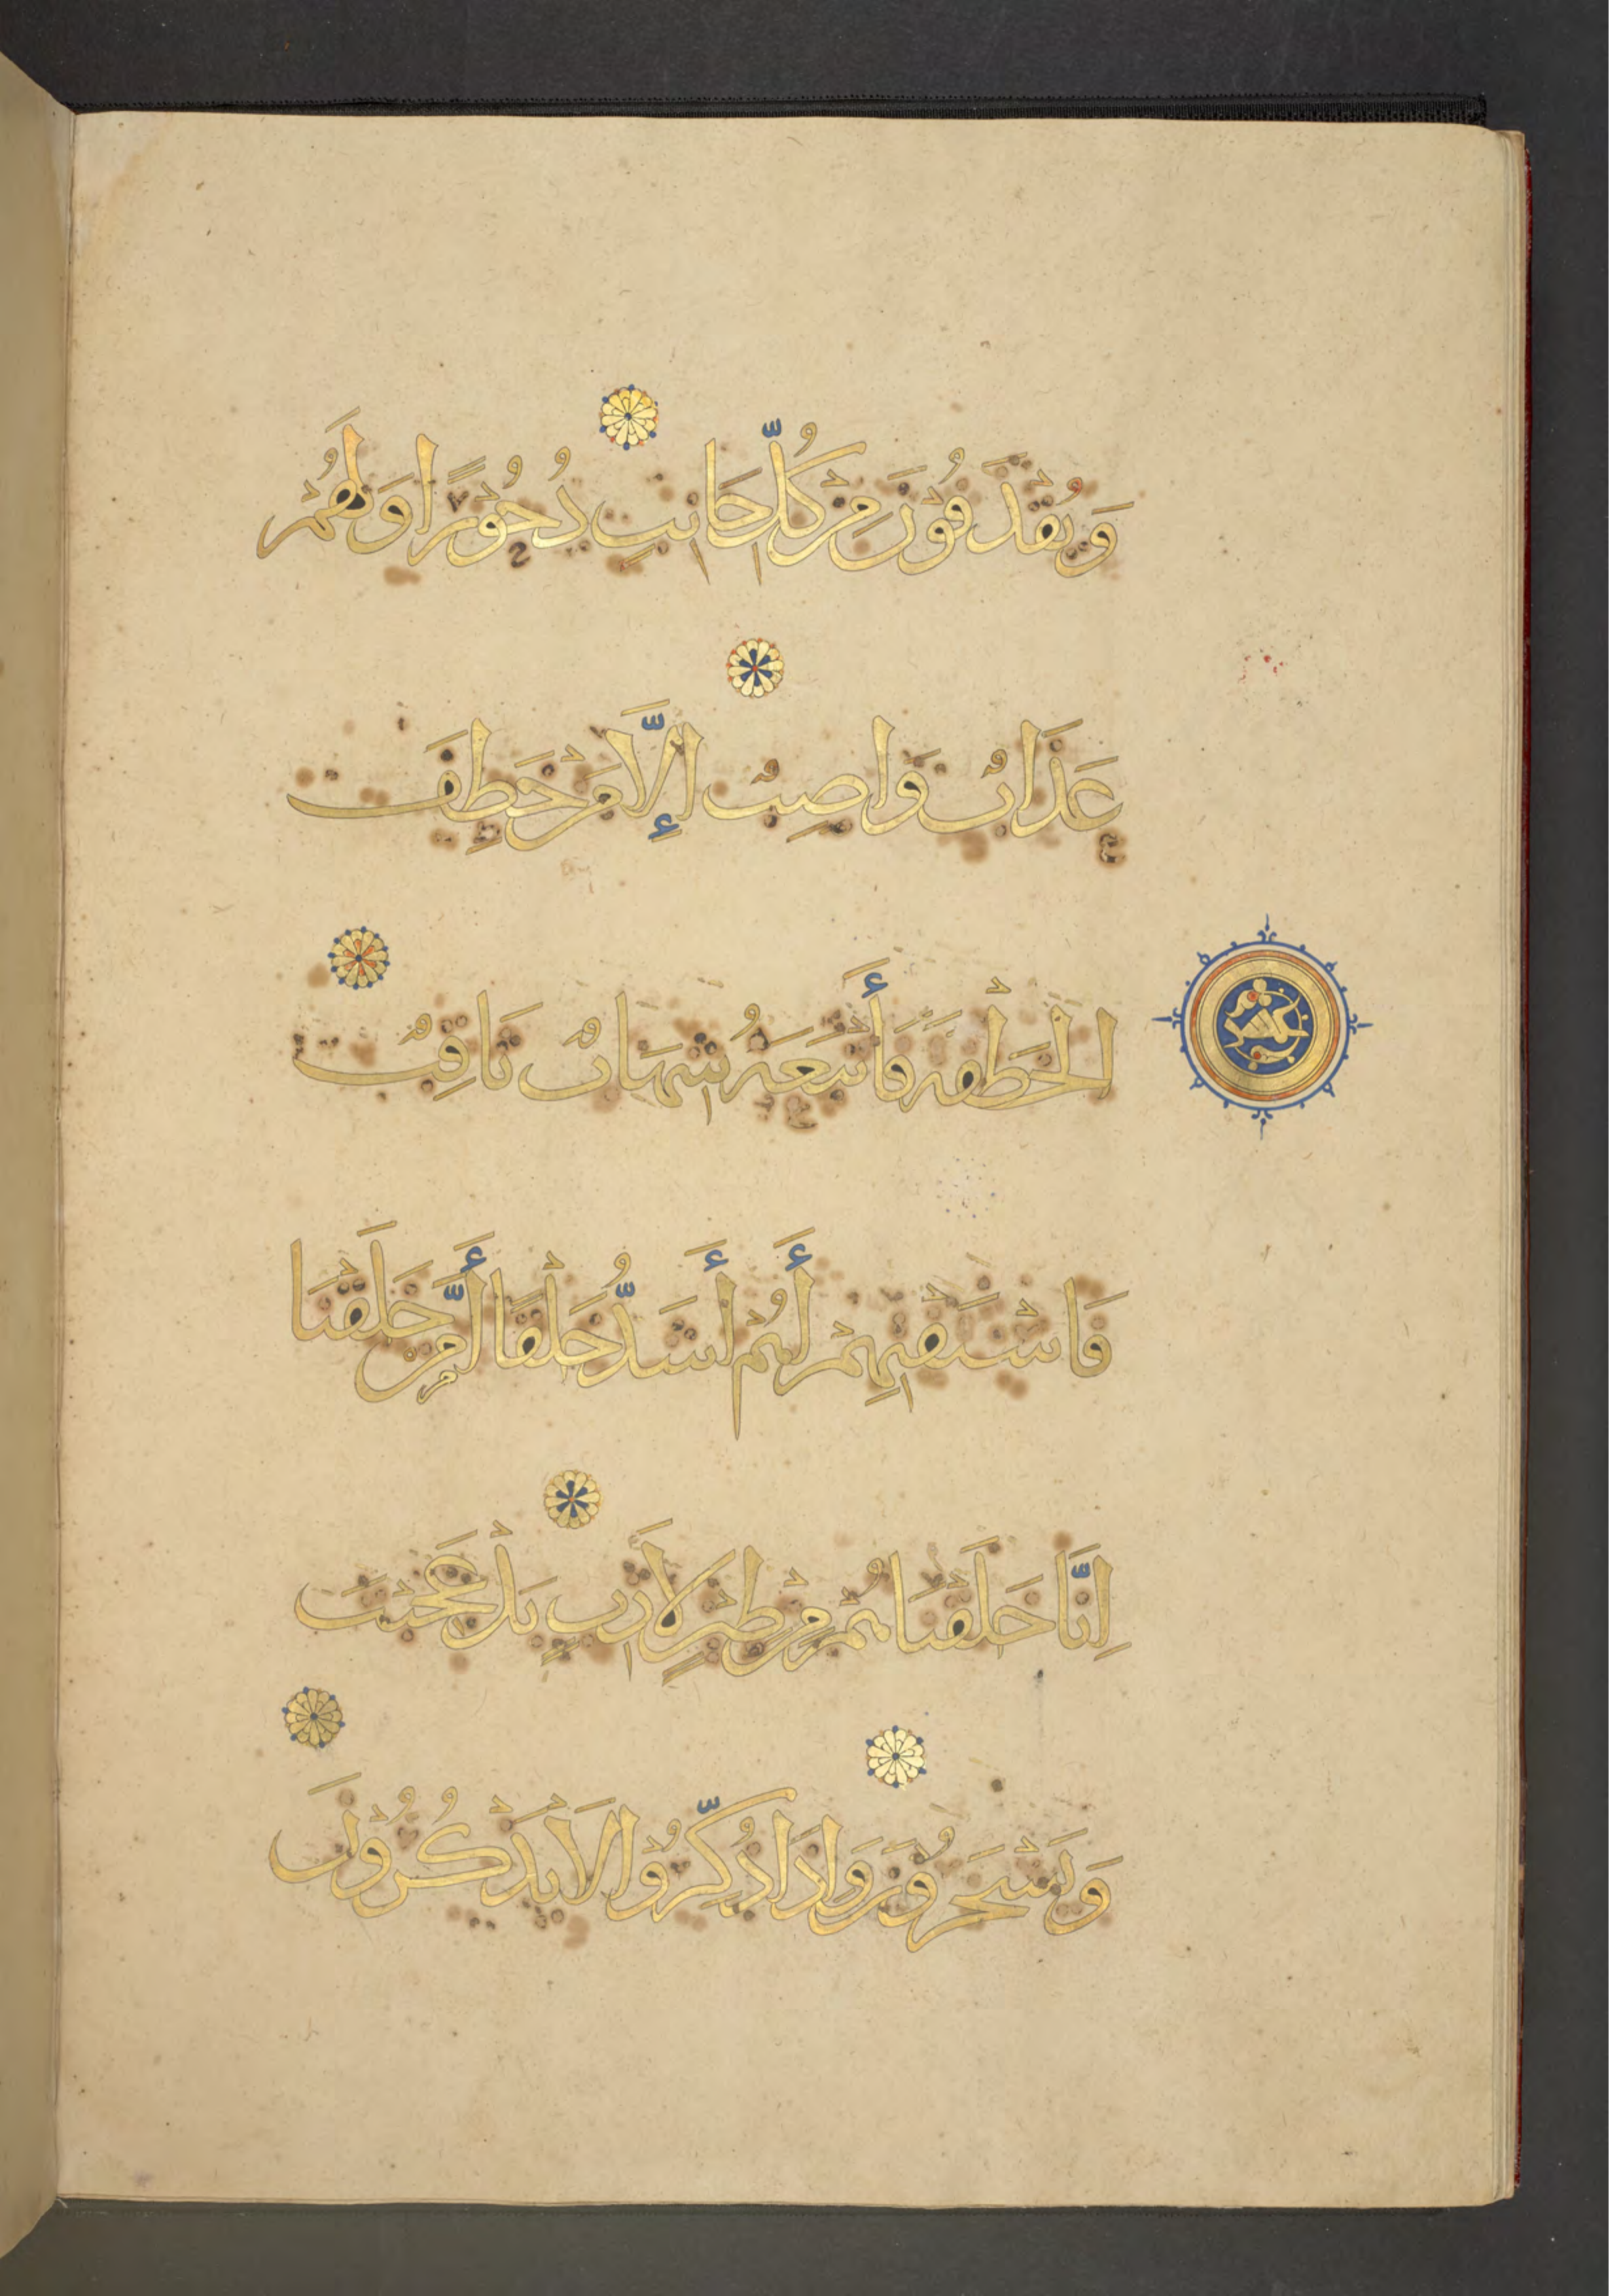 وَيُقْذَفُوْنَ مِنْ كُلِّ جَانِبٍ دُحُوْرًا وَلَهُمْ
عَذَابٌ وَاصِبٌ إِلَّا مَنْ خَطِفَ
الْخَطْفَةَ فَأَتْبَعَهُ شِهَابٌ ثَاقِبٌ
فَاسْتَفْتِهِمْ أَهُمْ أَشَدُّ خَلْقًا أَمَّنْ خَلَقْنَا
اِنَّا خَلَقْنَاهُمْ مِنْ طِيْنٍ لَازِبٍ بَلْ عَجِبْتَ
وَيَسْخَرُوْنَ وَاِذَا ذُكِّرُوْا لَا يَذْكُرُوْنَ